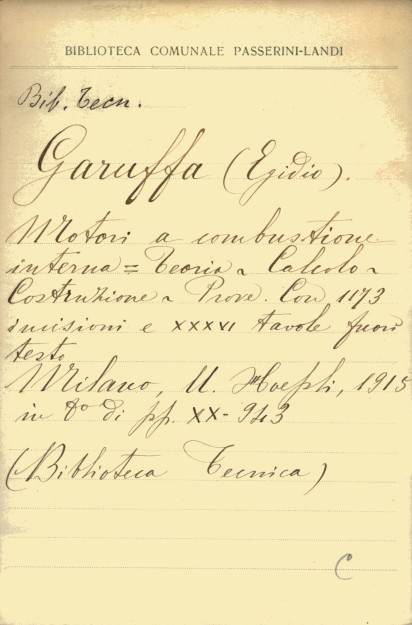 BIBLIOTECA COMUNALE PASSERINI-LANDI
Bib. Tecn.
Garuffa (Egidio).
Motori a combustione
interna = Teoria - Calcolo -
Costruzione - Prove. Con 1173
incisioni e XXXVI tavole fuori
testo
Milano, U. Hoepli, 1915
in 8º di pp. XX-943
(Biblioteca Tecnica)
C